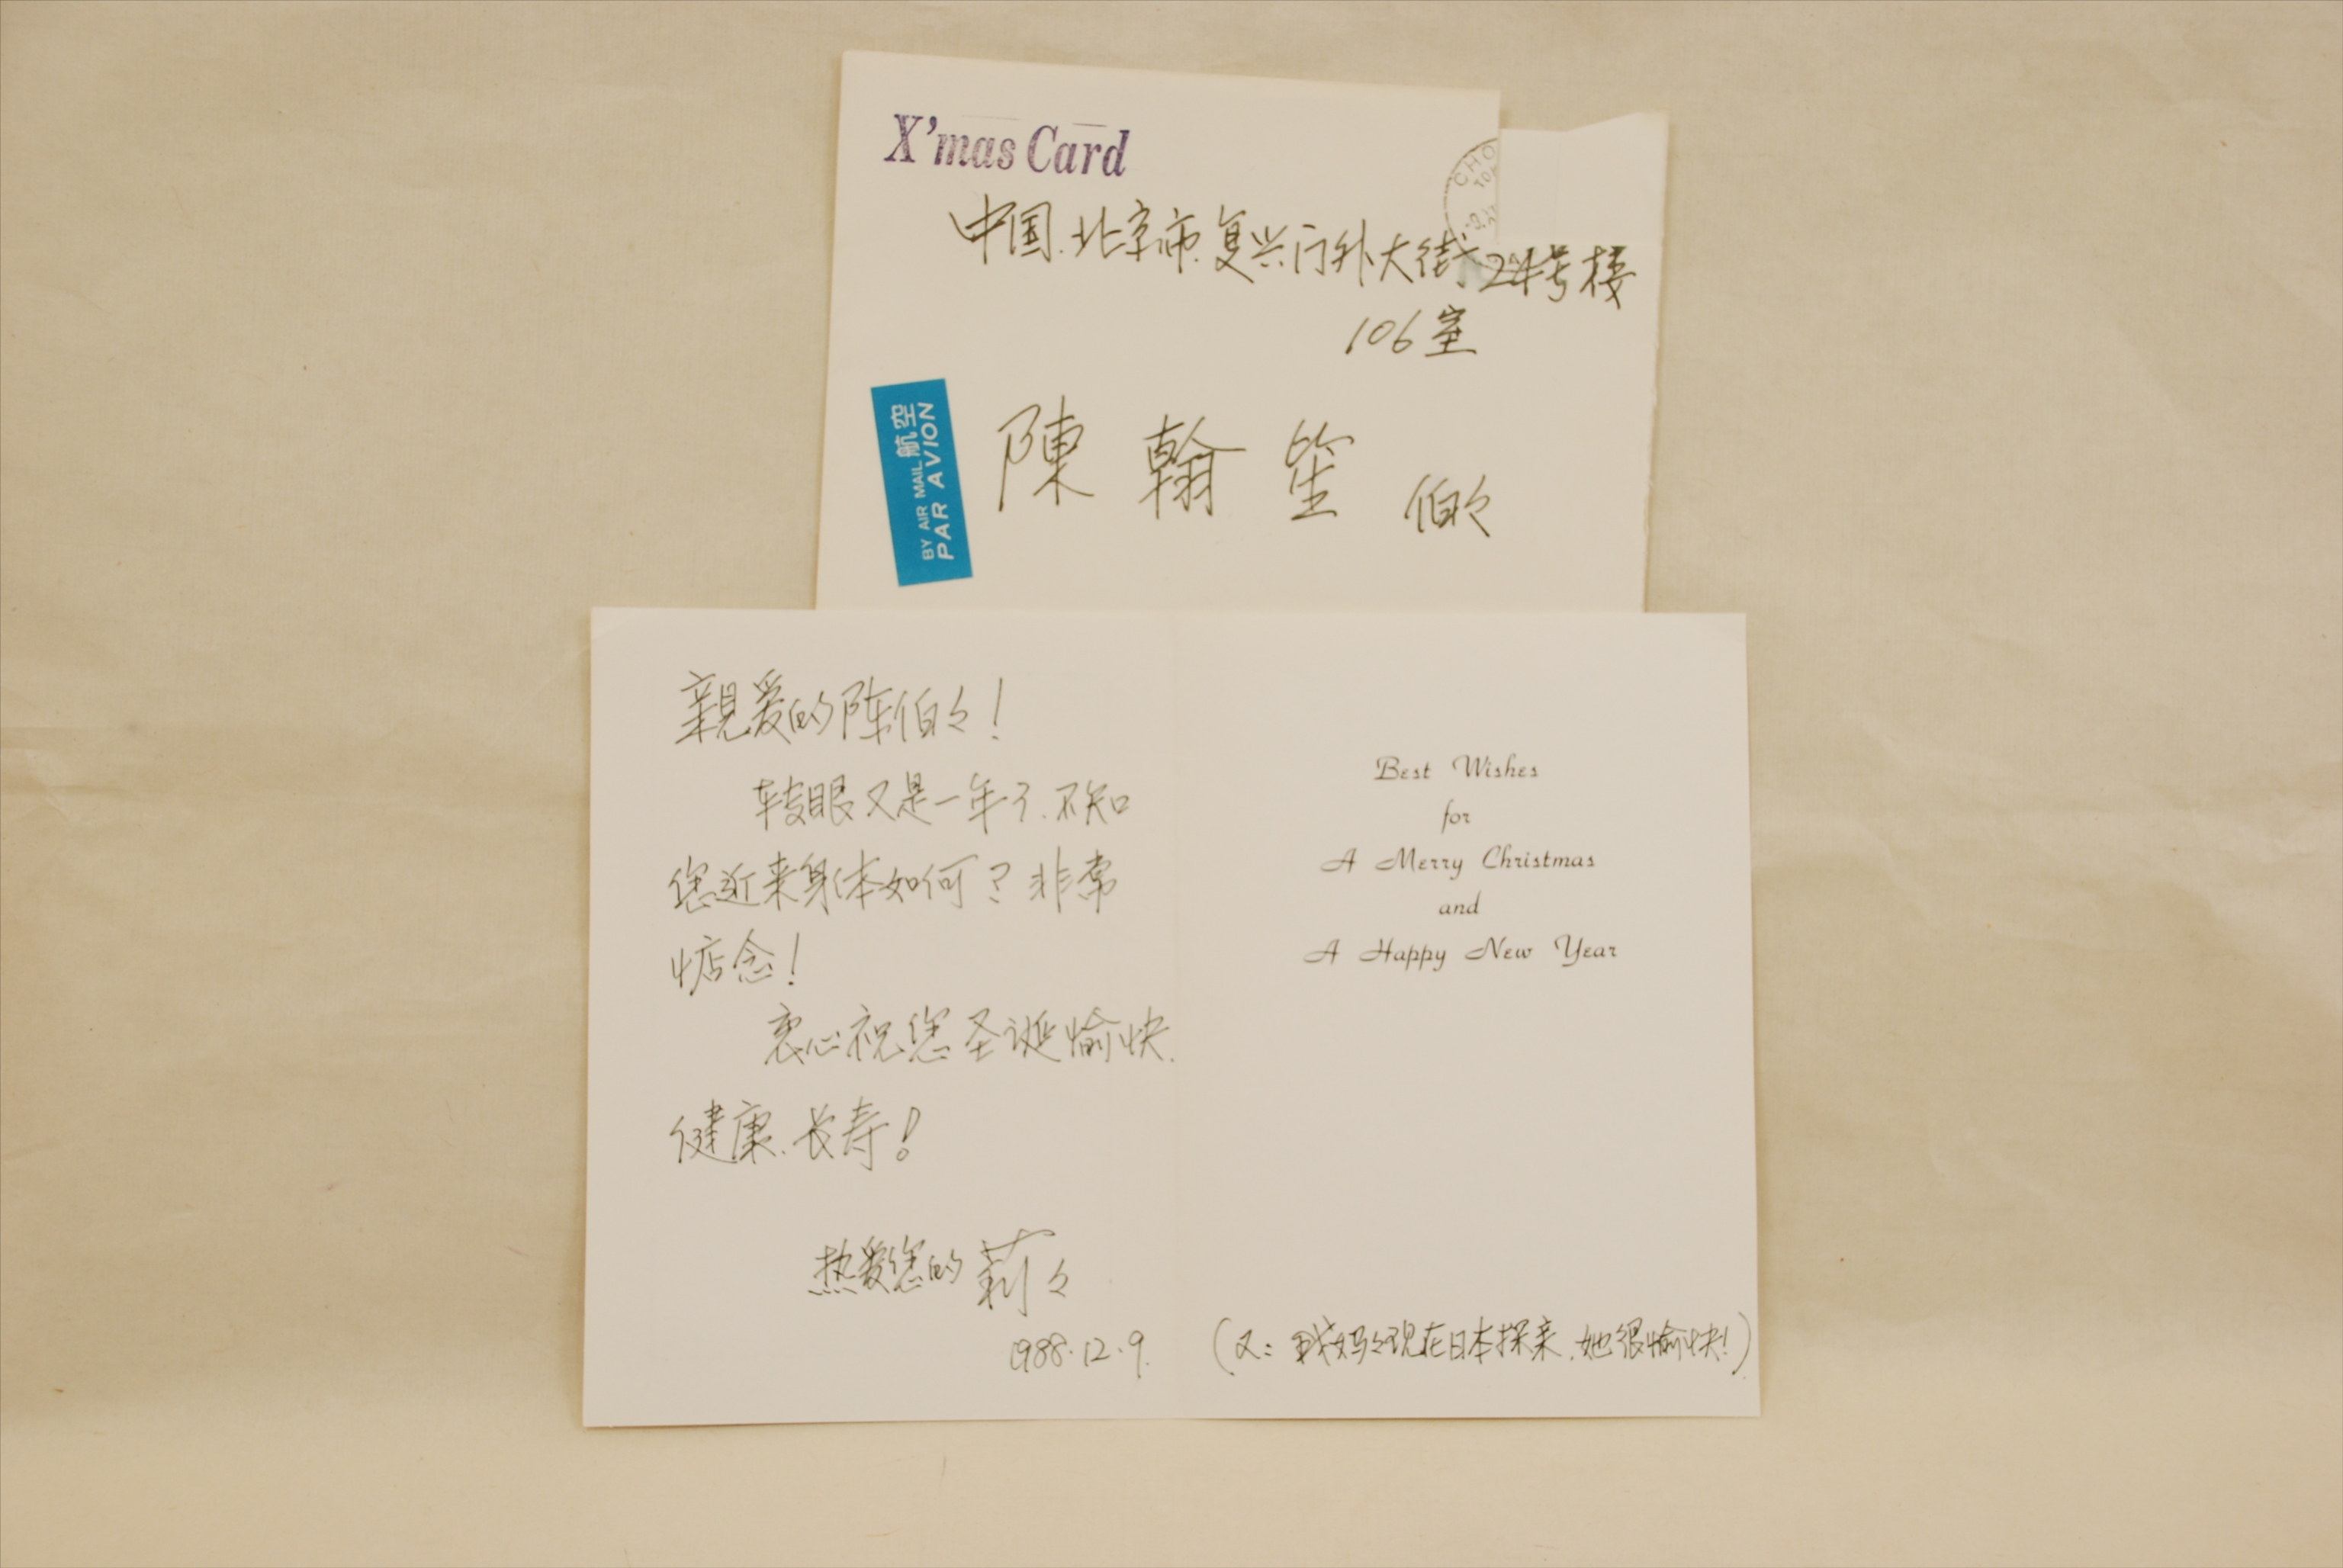 X'mas Card
CHO
中国.北京市.复兴门外大街.24号楼
106室
BY AIR MAIL 航空
PAR AVION
陳翰笙 伯々
親爱的陈伯々!
转眼又是一年了.不知
您近来身体如何?非常
惦念!
衷心祝您圣诞愉快.
健康.长寿!
热爱您的莉々
1988.12.9.
Best Wishes
for
A Merry Christmas
and
A Happy New Year
(又:我妈々现在日本探亲.她很愉快!)